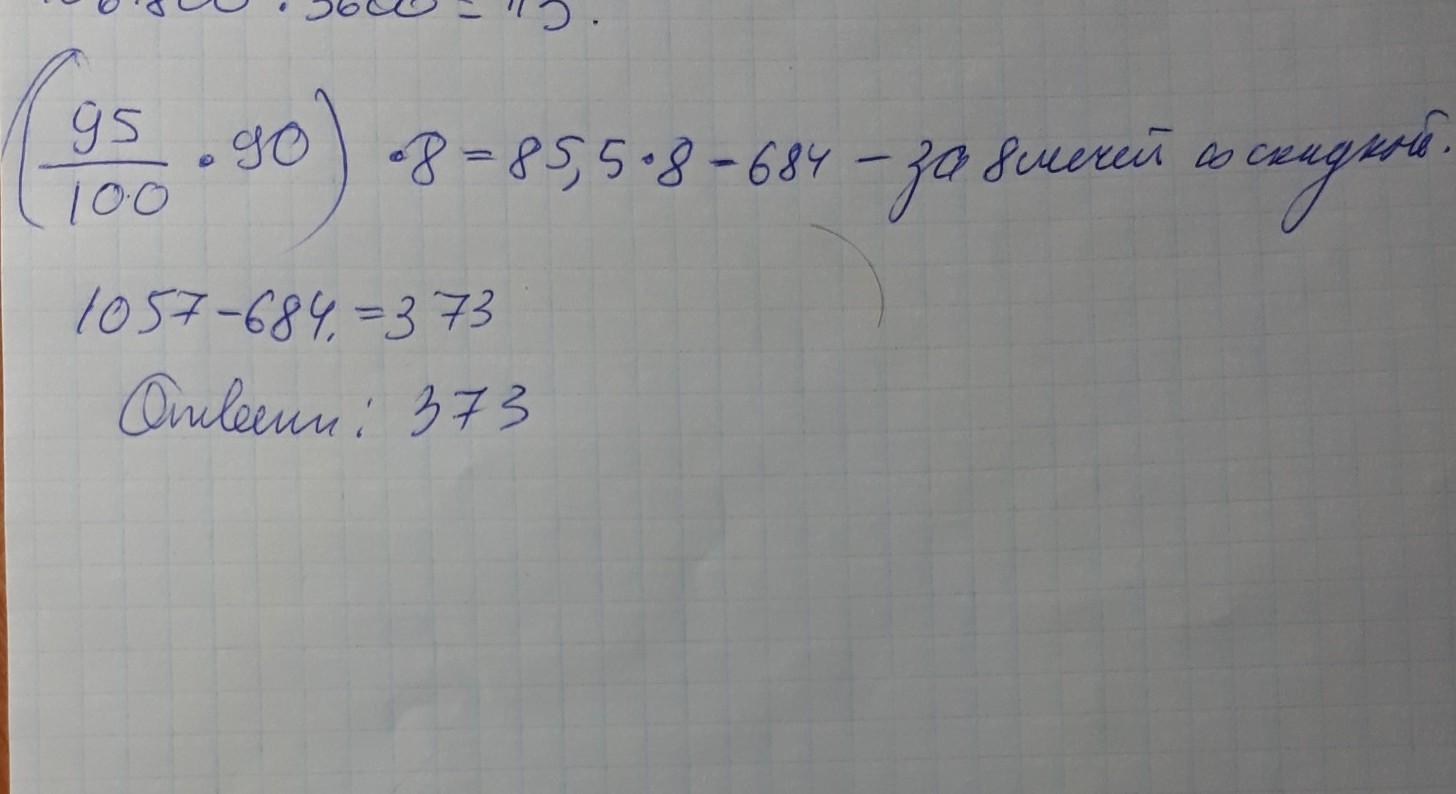 (95/100 · 90) · 8 = 85,5 · 8 = 684 – за 8 мечей со скидкой.
1057 – 684. = 373
Ответ: 373